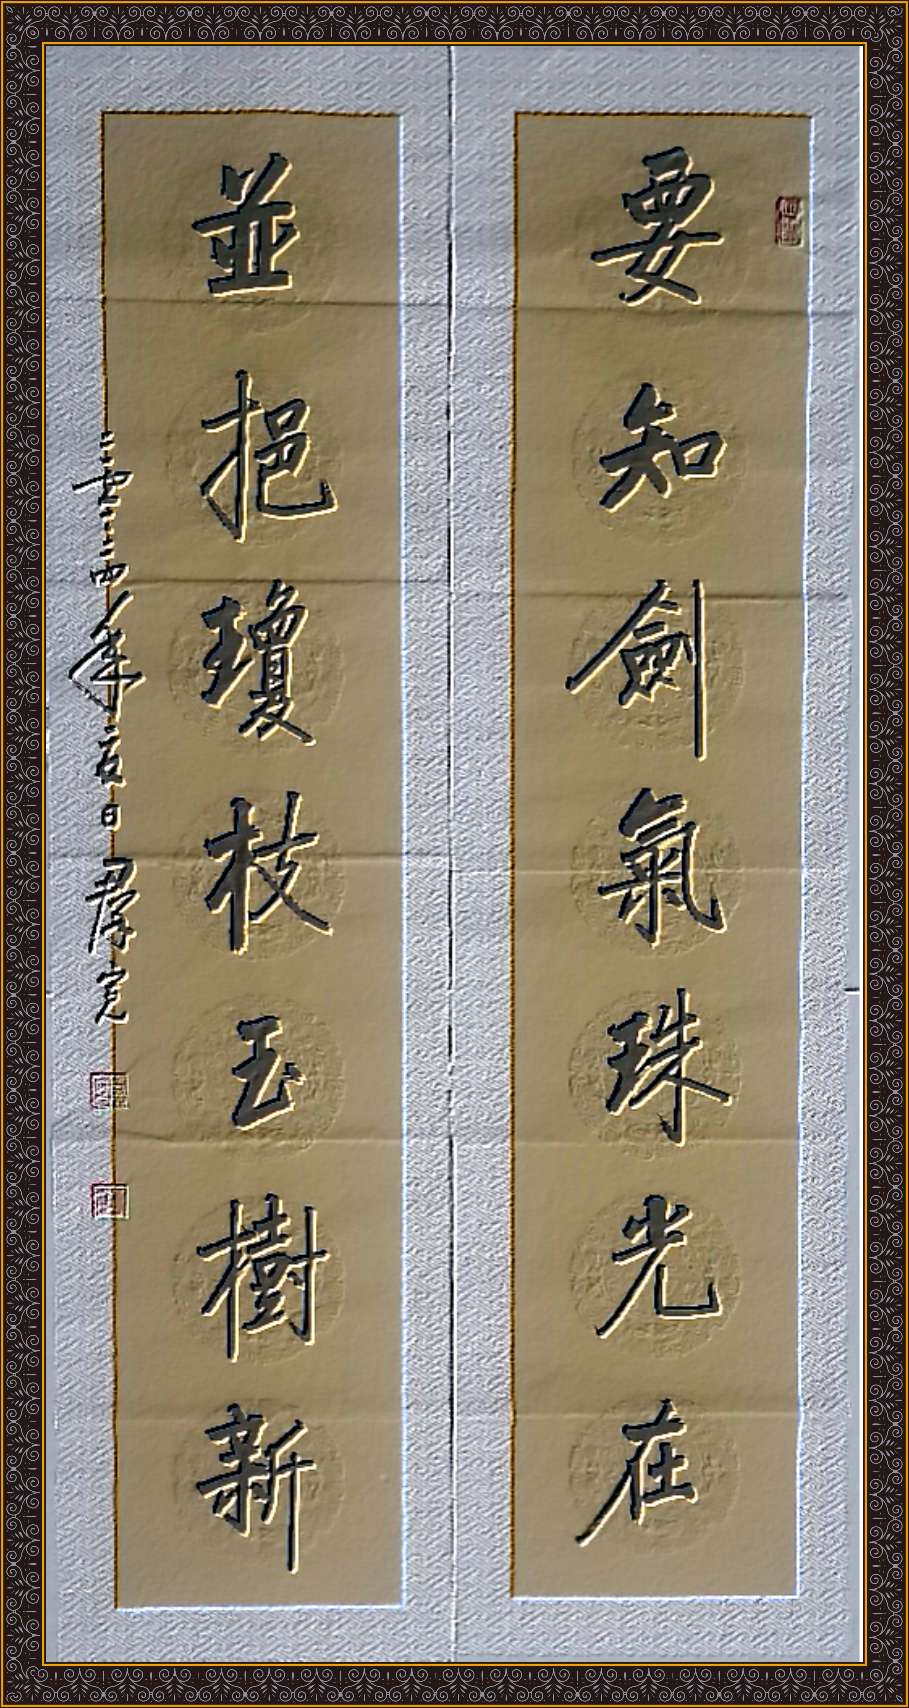 要知劍氣珠光在
並挹瓊枝玉樹新
二零二四年夏日